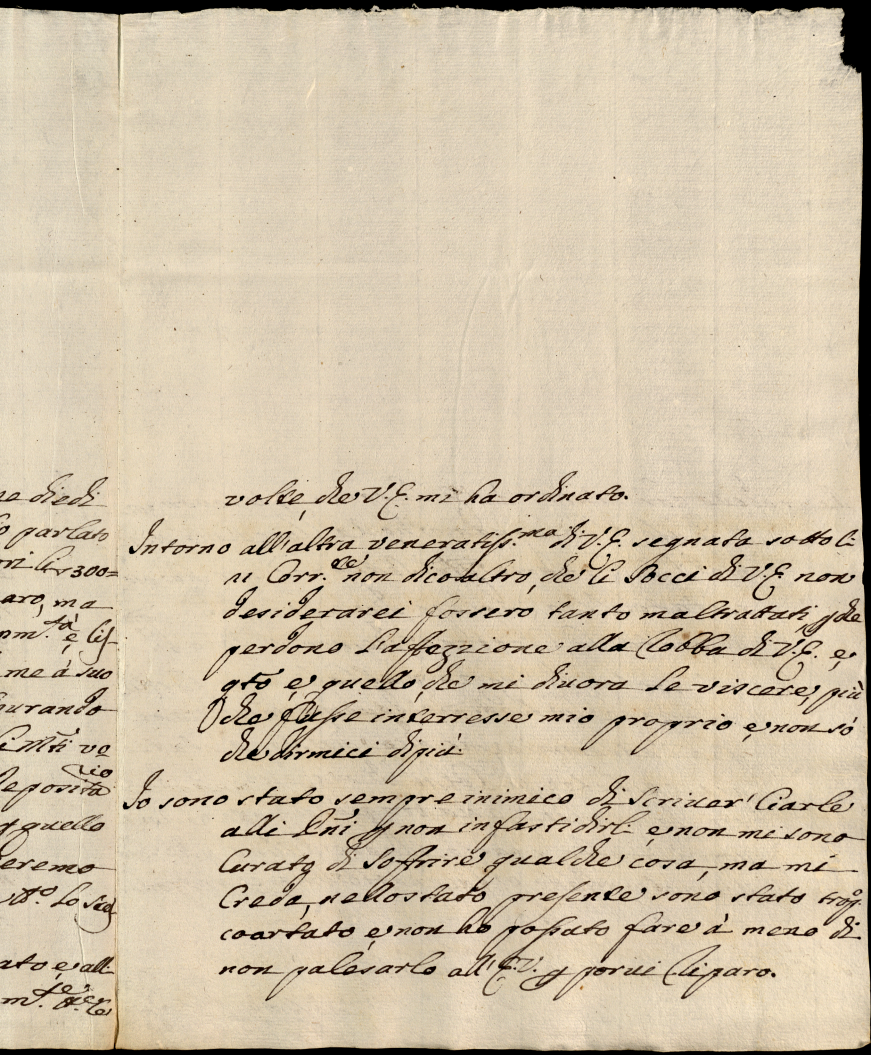 ne diedi
parlato
lir 300=
aro, ma
me à suo
urando
ve
deposita
quello
eremo
ato e all
volte, che V.E. mi ha ordinato.
Intorno all'altra veneratiss.ma di V.E. segnata sotto li
11 Corr.te non dico altro, che li Socci di V.E. non
desiderarei fossero tanto maltrattati, che
perdono l'affezzione alla Robba di V.E. e,
qto è quello, che mi divora le viscere, più
che fusse interresse mio proprio e, non sò
che dirmici di più.
Io sono stato sempre inimico di scriver' Ciarle
alli non infastidirli e, non mi sono
Curato di soffrire qualche cosa, ma mi
Creda, nello stato presente sono stato trop.o
coartato, e non ho possato fare à meno di
non palesarlo all'E.V. porvi Riparo.